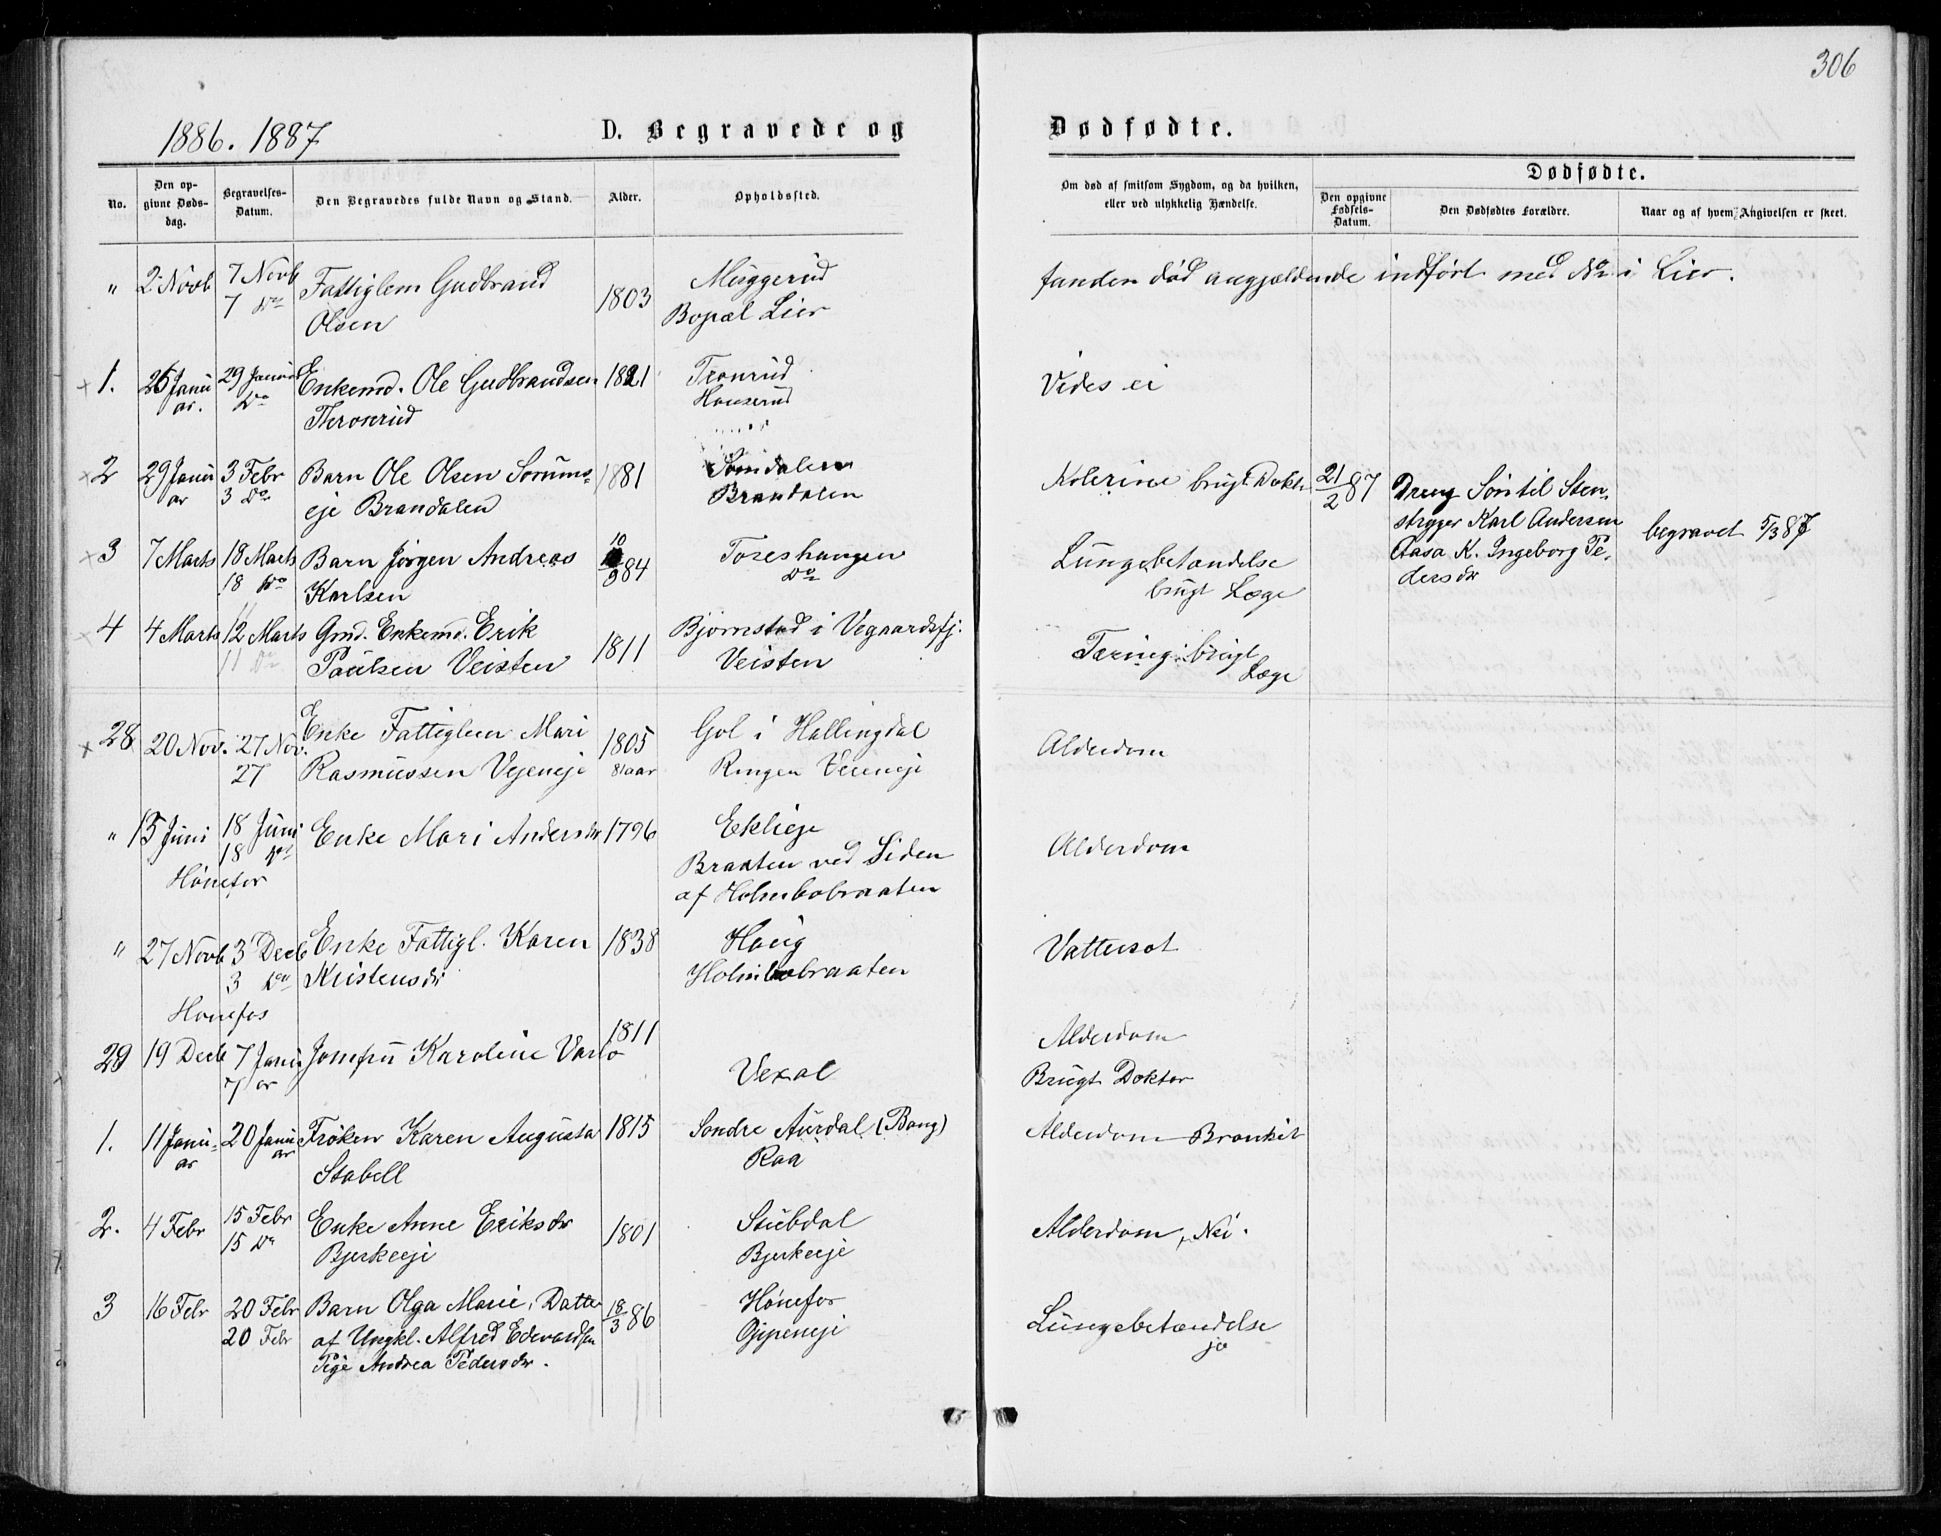 306
1886. 1887
D. Begravede og Dødfødte.
Dødfødte.
No.
Den opgivne Dødsdag.
Begravelses-Datum.
Den Begravedes fulde Navn og Stand.
Alder.
Opholdssted.
Om død af smitsom Sygdom, og da hvilken, eller ved ulykkelig Hændelse.
Den opgivne Fødsels-Datum.
Den Dødfødtes Forældre.
Naar og af hvem Angivelsen er skeet.
" 2 Novb 7 Novb Fattiglem Gudbrand 1803 Muggerud funden død angjældende indført med No i Lier.
7 Do Olsen Bopæl Lier
× 1. 25 Janu 29 Januar Enkemd. Ole Gudbrandsen 1821 Tronrud Vides ei
ar. Do Thronrud Honserud
× 2 29 Janu 3 Febr Barn Ole Olsen Sorums= 1881 Somdalen Kolerine brugt Dokt 21/2 87 Dreng Søn til Sten-
ar 3 Do eje Brandalen Brandalen stryger Karl Andersen
× 3 7 Marts 18 Marts Barn Jørgen Andreas 10/9 84 Toreshaugen Lungebetændelse Aasa K. Ingeborg Pe- begravet 5/3 87
18 Do Karlsen Do brugt Læge dersdr
× 4 4 Marts 12 Marts Gmd. Enkemd. Erik 1811 Bjørnstad i Vegaardsfj. Tæring brugt
11 Do Paulsen Veisten Veisten Læge
× 28 20 Nov. 27 Nov. Enke Fattiglem Mari 1805 Gol i Hallingdal Alderdom
27 Rasmussen Vejeneje 81 aar Ringen Veieneje
" 15 Juni 18 Juni Enke Mari Andersdr 1796 Eklieje Alderdom
18 Do Braaten ved Siden
Hønefos af Holmbobraaten
" 27 Novb 3 Decb Enke Fattigl. Karen 1838 Haug Vattersot
3 Do Kristensdr Holmbobraaten
Hønefos
29 19 Decb 7 Janu Jomfru Karoline Varlo 1811 Vexal Alderdom
7 ar Brugt Doktor
1. 11 Janu- 20 Janu Frøken Karen Augusta 1815 Søndre Aurdal (Bang) Alderdom Bronkit
ar ar Stabell Raa
2. 4 Febr 15 Febr Enke Anne Eriksdr 1801 Stubdal Alderdom, Nei.
15 Do Bjerkeeje Bjerkeeje
3 16 Febr 20 Febr Barn Olga Marie, Datter 18/3 86 Hønefos Lungebetændelse
20 Febr af Ungkl. Alfred Edevardsen Oppeneje ja
Pige Andrea Pedersdr.